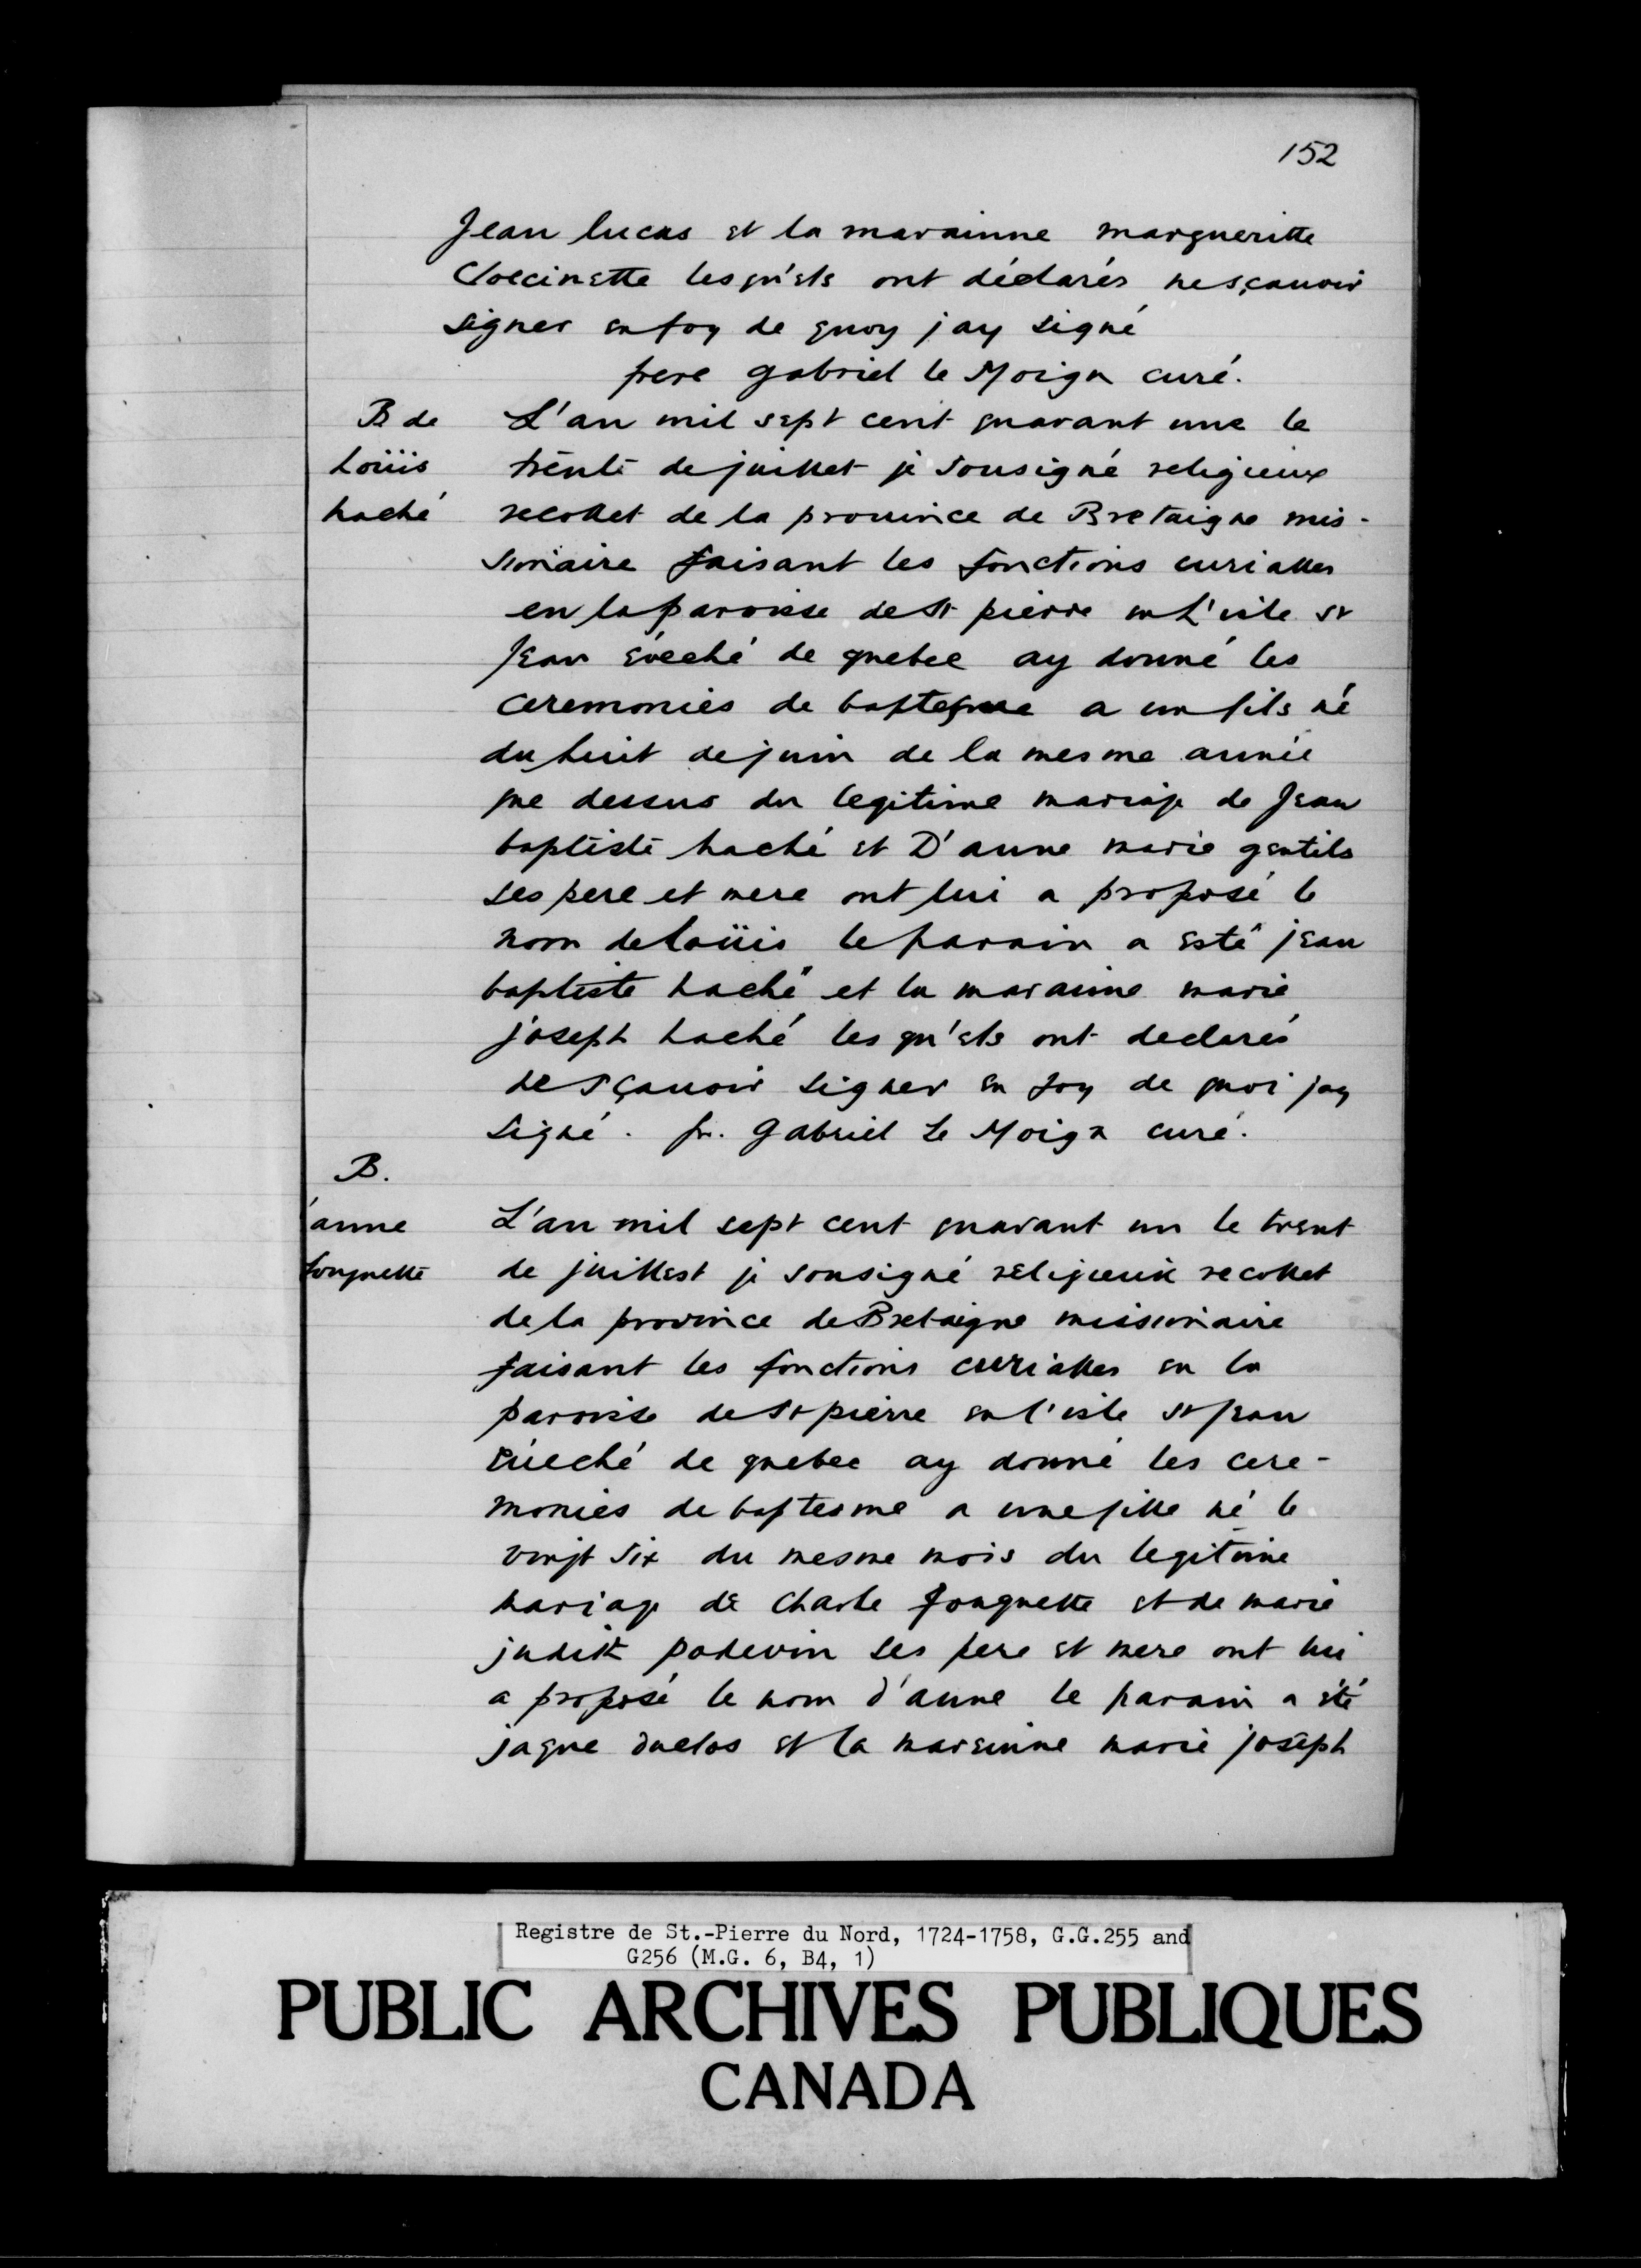 152
Jean lucas et la marainne margueritte
les qu'els ont déclarés ne sçauoir
signer en foy de quoy jay signé
frere gabriel le Moign curé.
B de
Loüis
haché
L'an mil sept cent quarant une le
trente de juillet je sousigné religieux
recollet de la prouince de Bretaigne mis-
sionaire faisant les fonctions curialles
en la paroisse de St pierre en L'isle st
Jean éveché de quebec ay donné les
ceremonies de baptesme a un fils né
du huit de juin de la mesme année
que dessus du legitime mariage de Jean
baptiste haché et D'anne marie gentils
ses pere et mere ont lui a proposé le
nom de Loüis le parain a esté jean
baptiste haché et la maraine marie
joseph haché les qu'els ont declarés
ne sçauoir signer en foy de quoi jay
signé. fr. gabriel Le Moign curé.
B.
anne
fouquette
L'an mil sept cent quarant un le trent
de juillest je sousigné religieux recollet
de la province de Bretaigne missionaire
faisant les fonctions curialles en la
paroisse de St pierre en l'isle st Jean
éueché de quebec ay donné les cere-
monies de baptesme a une fille né le
vingt six du mesme mois du legitime
mariage de Charle fouquette et de marie
judith podevin ses pere et mere ont lui
a proposé le nom d'anne le parain a été
jaque duclos et la marainne marie joseph
Registre de St.-Pierre du Nord, 1724-1758, G.G.255 and
G256 (M.G. 6, B4, 1)
PUBLIC ARCHIVES PUBLIQUES
CANADA